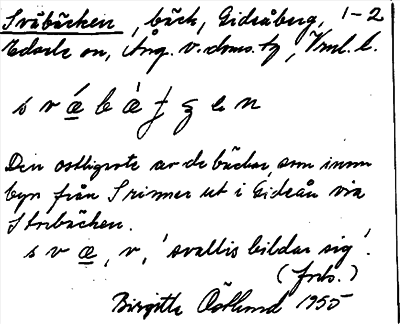 Sväbäcken, bäck, Eidsåberg, 1-2
Edsele sn, Ång. v. doms. tg, Vnl. l.
s v æ b ä
Den ostligaste av de bäckar, som inom
byn från S rinner ut i Eidsån via
Storbäcken.
s v æ, v, 'svallis bildar sig'.
(frts.)
Birgitta Östlund 1955